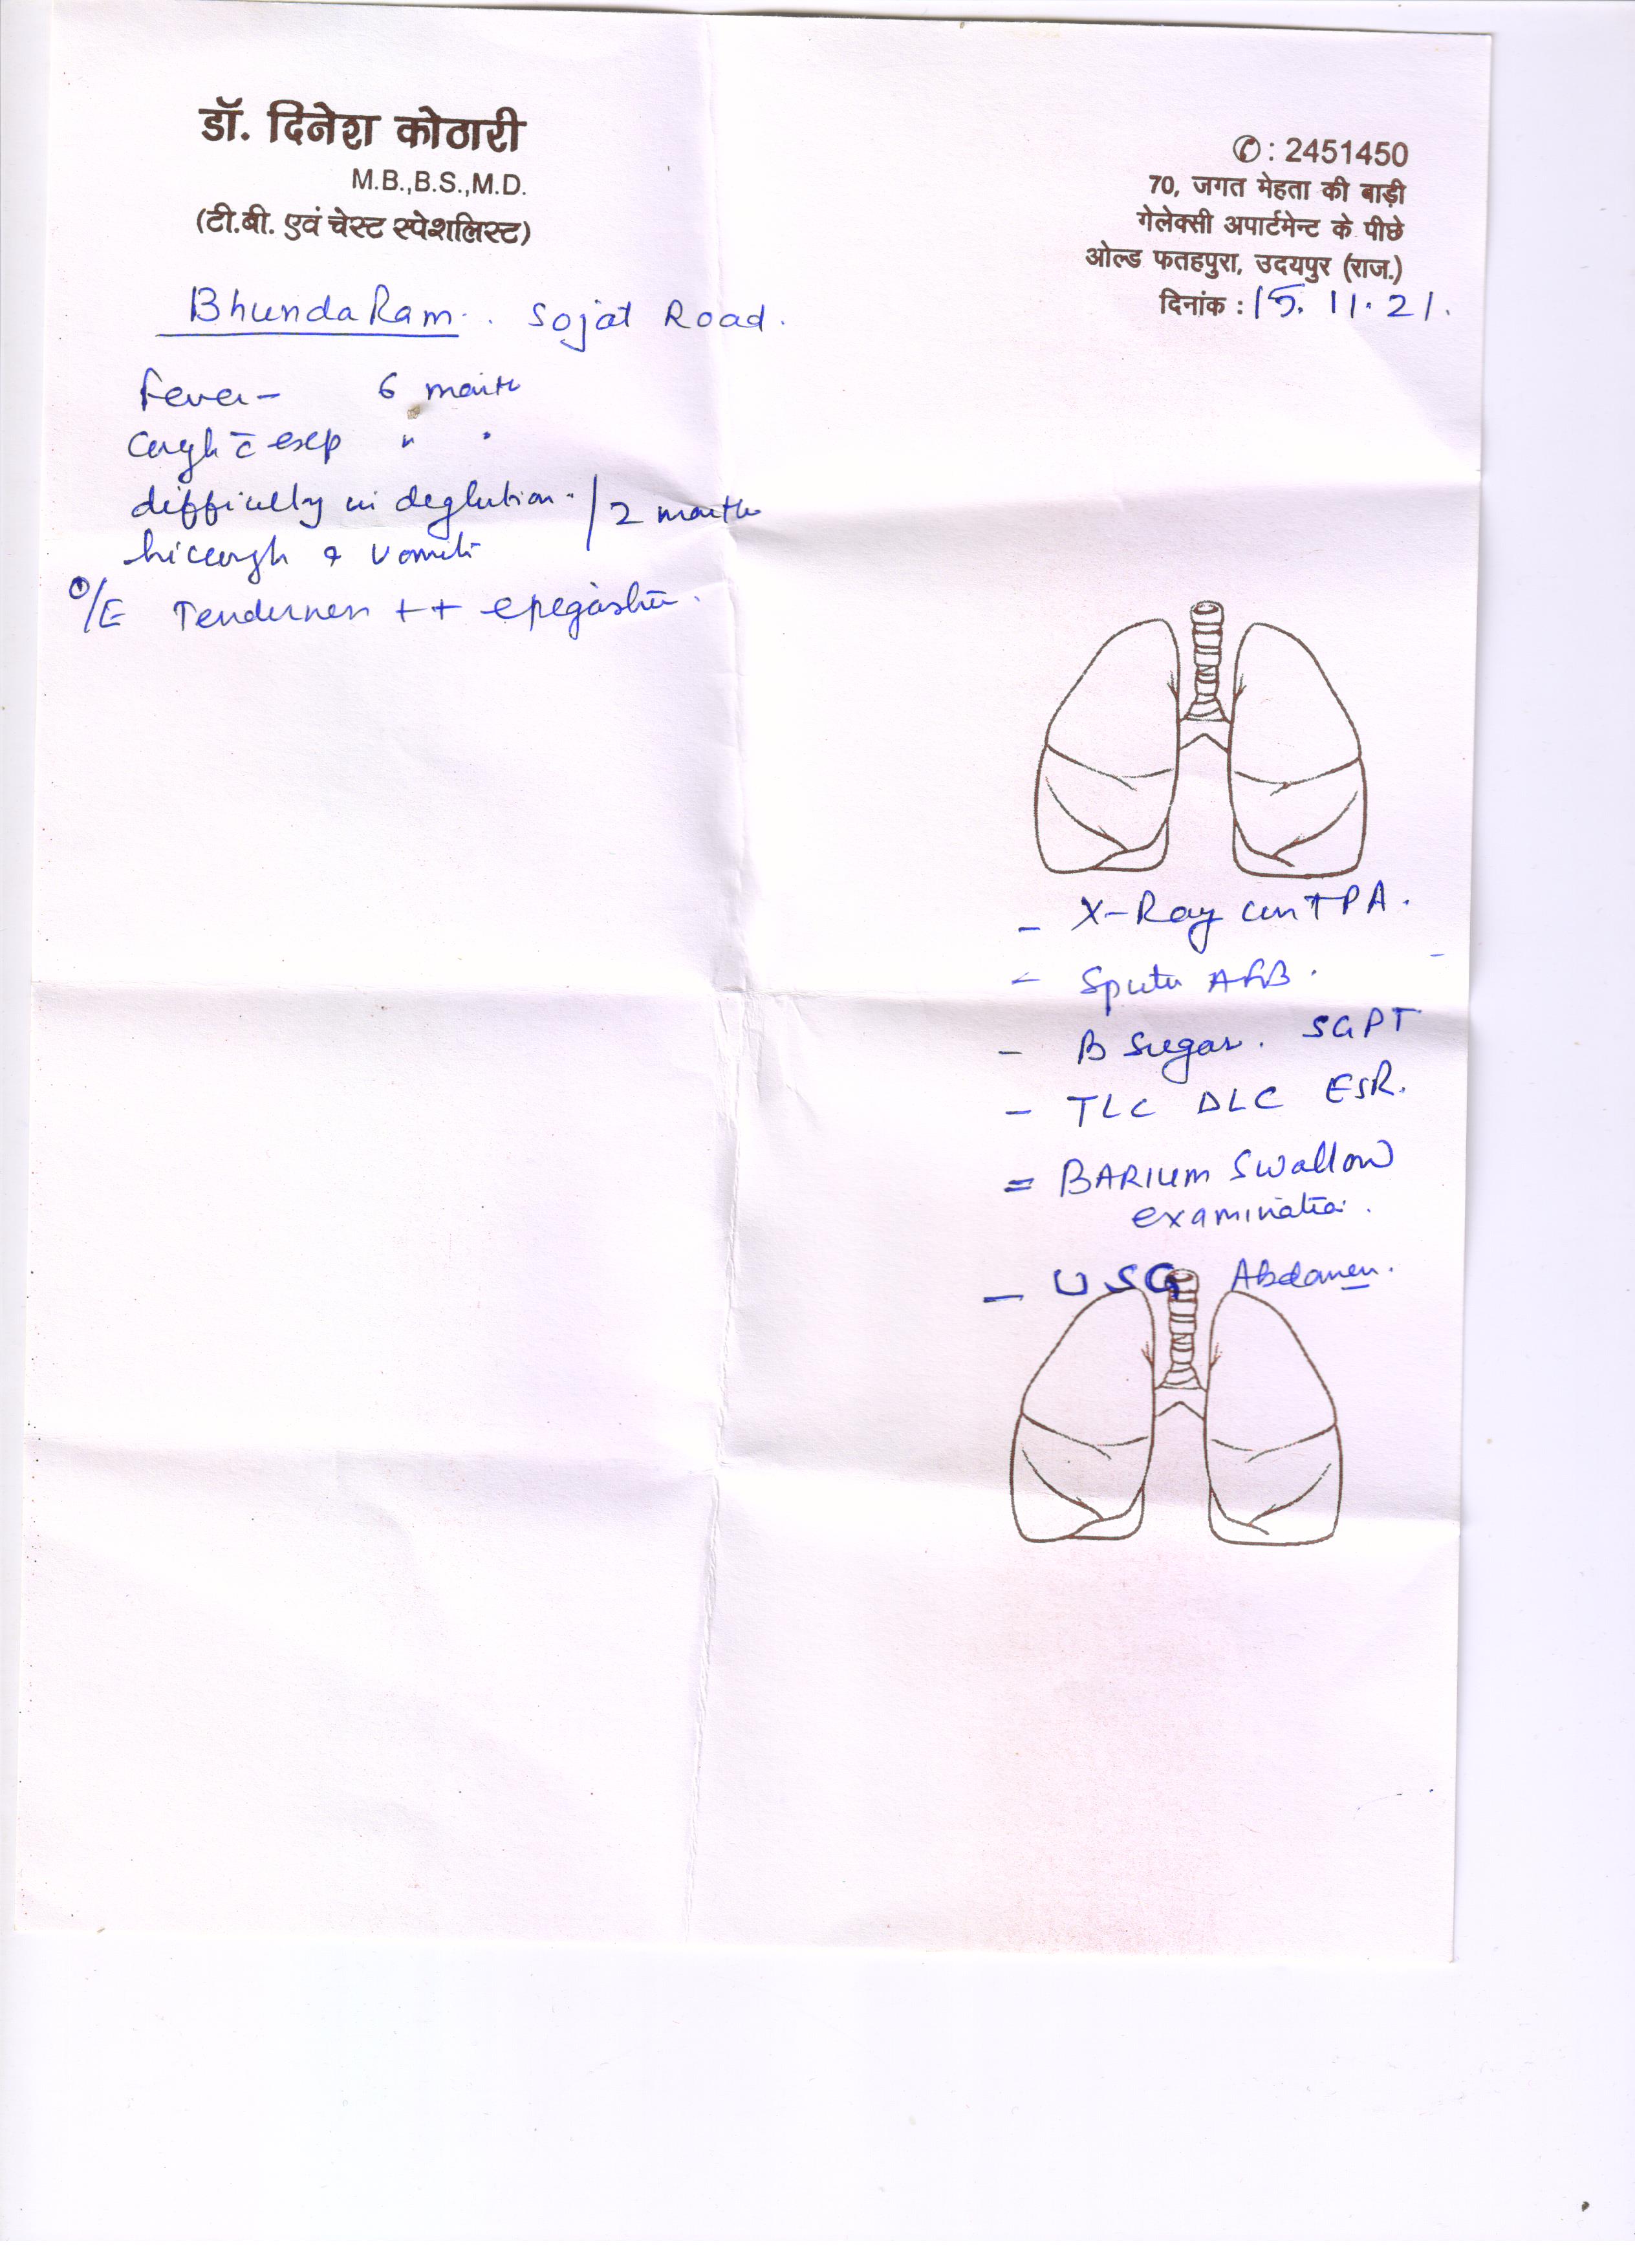 डॉ. दिनेश कोठारी
M.B.,B.S.,M.D.
(टी.बी. एवं चेस्ट स्पेशलिस्ट)
✆ : 2451450
70, जगत मेहता की बाड़ी
गेलेक्सी अपार्टमेन्ट के पीछे
ओल्ड फतहपुरा, उदयपुर (राज.)
दिनांक : 15. 11. 21.
BhundaRam. . Sojat Road.
Fever - 6 month
Cough c̄ exp " "
difficulty in deglution. / 2 months
hiccough & vomiti
O/E Tenderness ++ epegastri.
- X-Ray PA.
- Sputu AFB.
- B Sugar. SGPT
- TLC DLC ESR.
= BARIUM Swallow
examinatio.
- USG Abdomen.